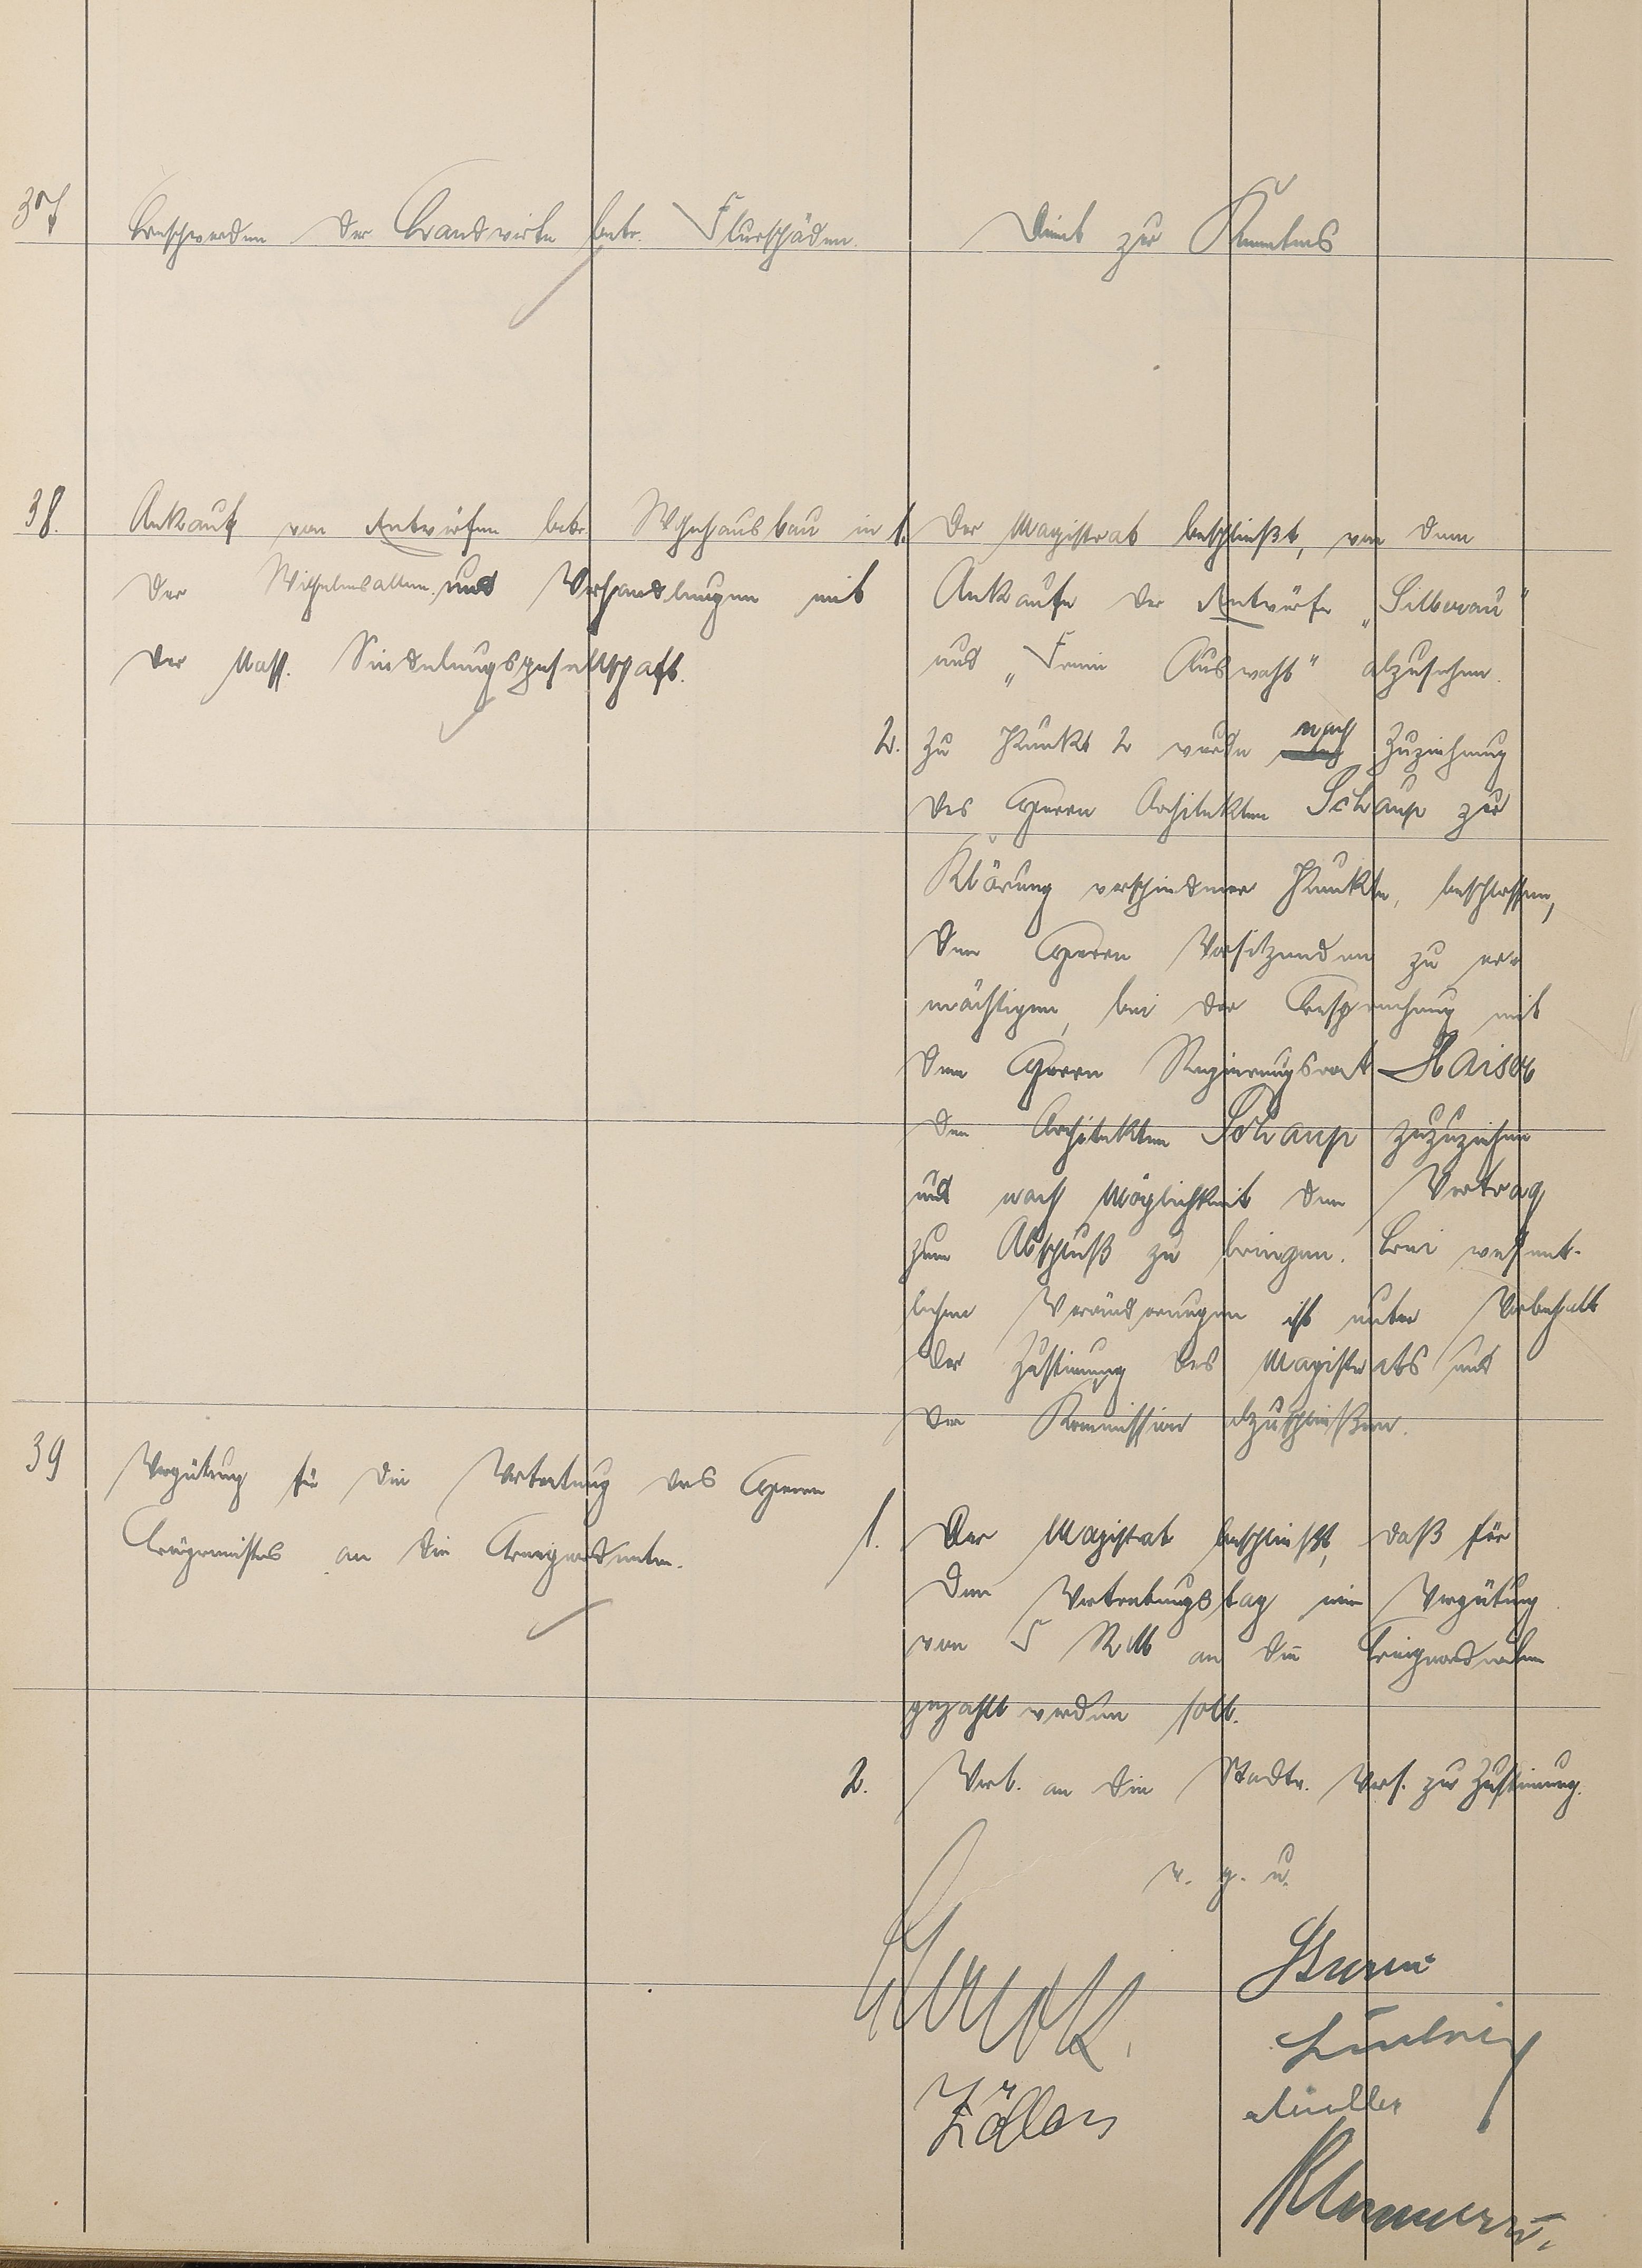 37
Beschwerden der Landwirte betr. Flurschäden.
Dient zur Kenntnis
38.
Ankauf von Entwürfen betr. Wohnhausbau in
der Wilhelmsallee und Verhandlungen mit
der Nass. Siedelungsgesellschaft.
1. Der Magistrat beschließt, von dem
Ankaufe der Entwürfe „Silberau"
und „Freie Auswahl" abzusehen.
2. Zu Punkt 2 wurde nach Zuziehung
des Herrn Architekten Schaup zur
Klärung verschiedener Punkte, beschlossen,
den Herrn Vorsitzenden zu er-
mächtigen, bei der Besprechung mit
dem Herrn Regierungsrat Kaiser
den Architekten Schaup zuzuziehen
und nach Möglichkeit den Vertrag
zum Abschluß zu bringen. Bei wesent-
lichen Veränderungen ist unter Vorbehalt
der Zustimmung des Magistrats und
der Kommission abzuschließen.
39
Vergütung für die Vertretung des Herrn
Bürgermeisters an die Beigeordneten.
1. Der Magistrat beschließt, daß für
den Vertretungstag eine Vergütung
von 5 RM an die Beigeordneten
gezahlt werden soll.
2. Verf. an die Stadtv. Vers. zur Zustimmung.
v. g. u.
Ludwig
Müller